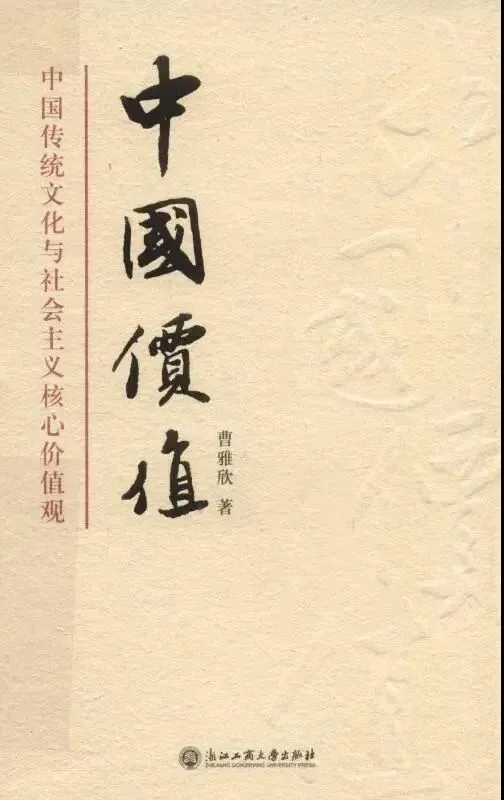 中國價值
中国传统文化与社会主义核心价值观
曹雅欣 著
浙江工商大学出版社
ZHEJIANG GONGSHANG UNIVERSITY PRESS